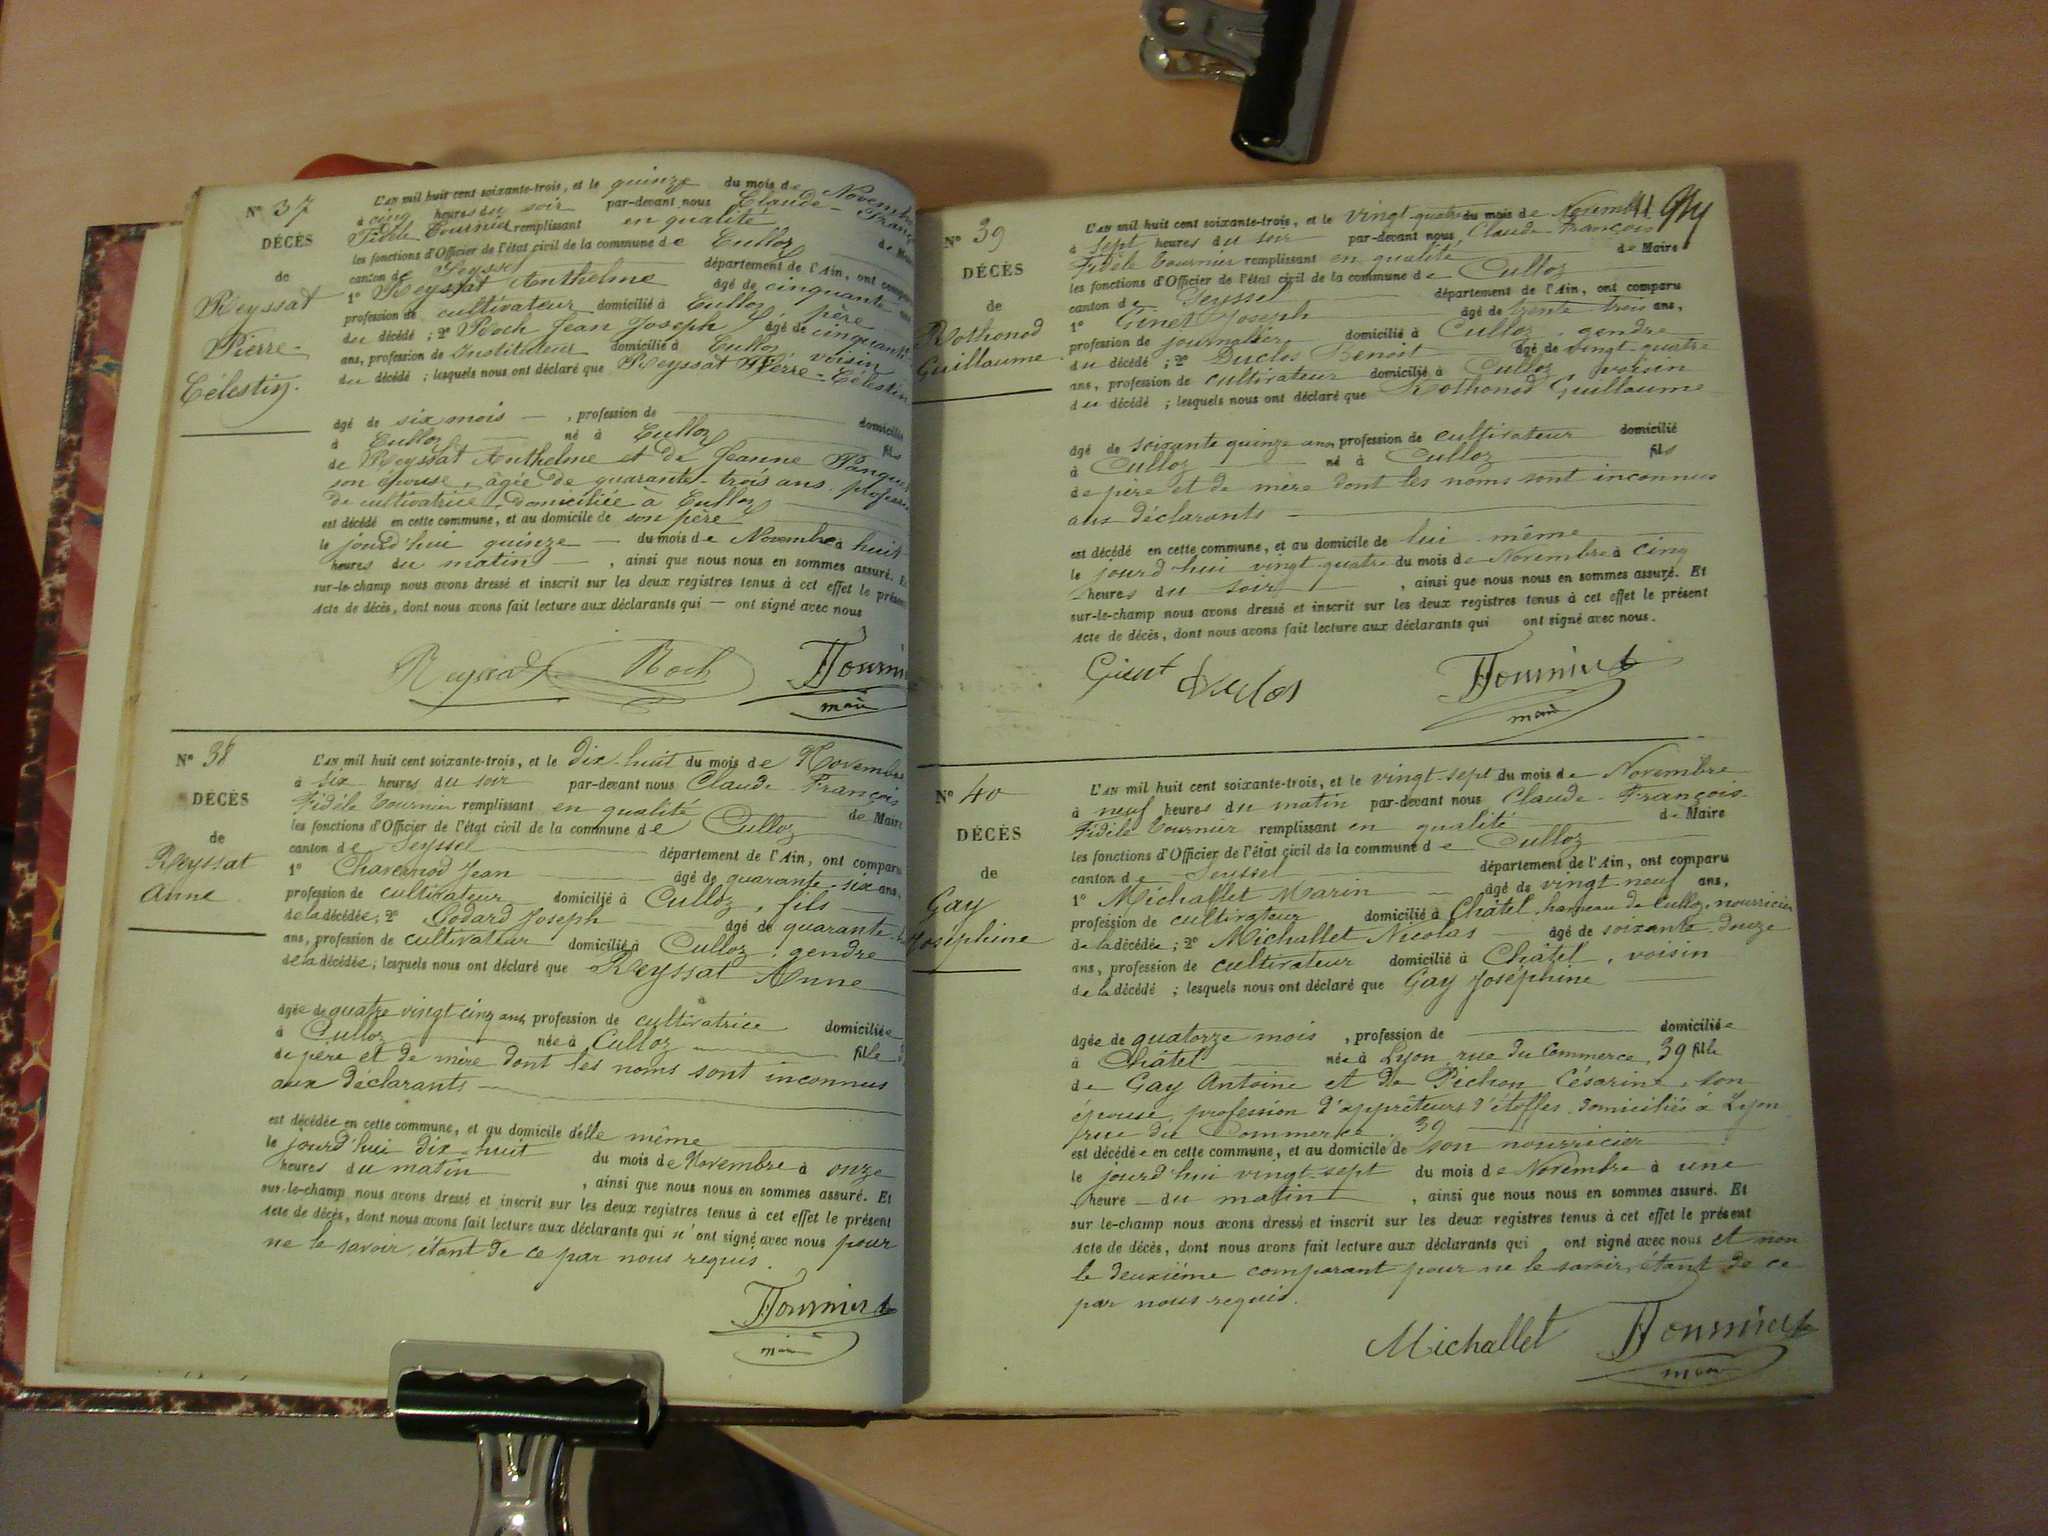 N° 37
DÉCÈS
de
Reyssat
Pierre-
Célestin.
L'AN mil huit cent soixante-trois, et le quinze du mois de Novembre
à cinq heures du soir par-devant nous Claude-Franç
Fidèle Tournier remplissant en qualité de Maire
les fonctions d'Officier de l'état civil de la commune de Culloz
canton de Seyssel département de l'Ain, ont comparu
1° Reyssat Anthelme âgé de cinquante ans
profession de cultivateur domicilié à Culloz, père
du décédé ; 2° Roch Jean Joseph âgé de cinquante
ans, profession de Instituteur domicilié à Culloz, voisin
du décédé ; lesquels nous ont déclaré que Reyssat Pierre-Célestin
âgé de six mois — , profession de domicilié
à Culloz né à Culloz fils
de Reyssat Anthelme et de Jeanne
son épouse, âgée de quarante-trois ans, profession
de cultivatrice, domiciliée à Culloz
est décédé en cette commune, et au domicile de son père
le jourd'hui quinze — du mois de Novembre à huit
heures du matin — , ainsi que nous nous en sommes assuré. Et
sur-le-champ nous avons dressé et inscrit sur les deux registres tenus à cet effet le présent
Acte de décès, dont nous avons fait lecture aux déclarants qui — ont signé avec nous
Reyssat Roch FTournier
maire
N° 38
DÉCÈS
de
Reyssat
Anne
L'AN mil huit cent soixante-trois, et le dix-huit du mois de Novembre
à six heures du soir par-devant nous Claude-François
Fidèle Tournier remplissant en qualité de Maire
les fonctions d'Officier de l'état civil de la commune de Culloz
canton de Seyssel département de l'Ain, ont comparu
1° Chavernod Jean âgé de quarante-six ans,
profession de cultivateur domicilié à Culloz, fils
de la décédée; 2° Godard Joseph âgé de quarante-
ans, profession de cultivateur domicilié à Culloz, gendre
de la décédée; lesquels nous ont déclaré que Reyssat Anne
âgée de quatre vingt cinq ans, profession de cultivatrice domiciliée
à Culloz née à Culloz fille
de père et de mère dont les noms sont inconnus
aux déclarants
est décédée en cette commune, et au domicile d'elle même
le jourd'hui dix-huit du mois de Novembre à onze
heures du matin , ainsi que nous nous en sommes assuré. Et
sur-le-champ nous avons dressé et inscrit sur les deux registres tenus à cet effet le présent
Acte de décès, dont nous avons fait lecture aux déclarants qui n'ont signé avec nous pour
ne le savoir, étant de ce par nous requis.
FTournier
maire
N° 39
DÉCÈS
de
Rothonod
Guillaume
L'AN mil huit cent soixante-trois, et le vingt-quatre du mois de Novembre
à sept heures du soir par-devant nous Claude-François
Fidèle Tournier remplissant en qualité de Maire
les fonctions d'Officier de l'état civil de la commune de Culloz
canton de Seyssel département de l'Ain, ont comparu
1° Ginet Joseph âgé de trente trois ans,
profession de journalier domicilié à Culloz, gendre
du décédé ; 2° Duclos Benoit âgé de vingt-quatre
ans, profession de cultivateur domicilié à Culloz, voisin
du décédé ; lesquels nous ont déclaré que Rothonod Guillaume
âgé de soixante quinze ans profession de cultivateur domicilié
à Culloz né à Culloz fils
de père et de mère dont les noms sont inconnus
aux déclarants
est décédé en cette commune, et au domicile de lui même
le jourd'hui vingt-quatre du mois de Novembre à cinq
heures du soir , ainsi que nous nous en sommes assuré. Et
sur-le-champ nous avons dressé et inscrit sur les deux registres tenus à cet effet le présent
Acte de décès, dont nous avons fait lecture aux déclarants qui ont signé avec nous.
Ginet Duclos FTournier
maire
N° 40
DÉCÈS
de
Gay
Joséphine
L'AN mil huit cent soixante-trois, et le vingt-sept du mois de Novembre
à neuf heures du matin par-devant nous Claude-François
Fidèle Tournier remplissant en qualité de Maire
les fonctions d'Officier de l'état civil de la commune de Culloz
canton de Seyssel département de l'Ain, ont comparu
1° Michallet Marin âgé de vingt-neuf ans,
profession de cultivateur domicilié à Châtel, hameau de Culloz, nourricier
de la décédée ; 2° Michallet Nicolas âgé de soixante-douze
ans, profession de cultivateur domicilié à Châtel, voisin
de la décédé ; lesquels nous ont déclaré que Gay Joséphine
âgée de quatorze mois , profession de domiciliée
à Châtel née à Lyon, rue du Commerce, 39 fille
de Gay Antoine et de Pichon Césarine, son
épouse, profession d'apprêteurs d'étoffes, domiciliés à Lyon
rue du Commerce, 39
est décédée en cette commune, et au domicile de son nourricier
le jourd'hui vingt-sept du mois de Novembre à une
heure du matin , ainsi que nous nous en sommes assuré. Et
sur le-champ nous avons dressé et inscrit sur les deux registres tenus à cet effet le présent
Acte de décès, dont nous avons fait lecture aux déclarants qui ont signé avec nous et non
le deuxième comparant pour ne le savoir, étant de ce
par nous requis.
Michallet FTournier
maire